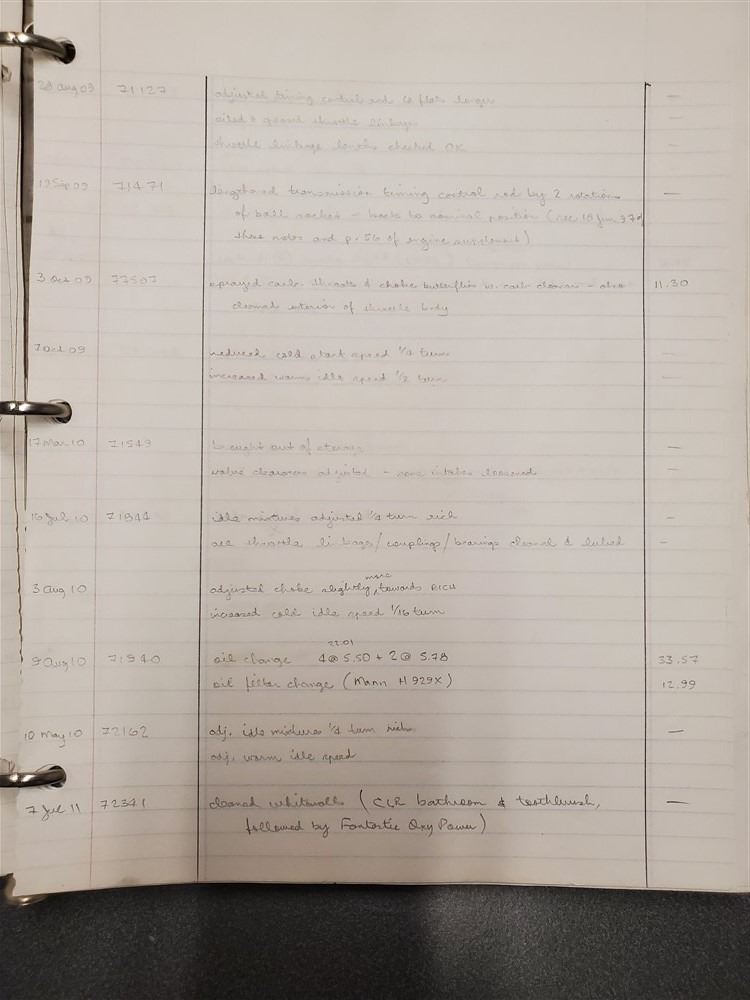 28 Aug 09 71127 adjusted timing control rod 6 flats longer —
oiled & greased throttle linkage —
throttle linkage lengths checked OK —
12 Sep 09 71471 lengthened transmission timing control rod by 2 rotations —
of ball socket – back to nominal position (see 10 Jun 97
these notes and p. 56 of engine supplement)
3 Oct 09 sprayed carb. throats & choke butterflies w. carb cleaner – also 11.30
cleaned exterior of throttle body
7 Oct 09 reduced cold start speed 1/4 turn —
increased warm idle speed 1/2 turn —
17 Mar 10 71549 brought out of storage —
valve clearances adjusted – some intakes loosened —
16 Jul 10 71844 idle mixtures adjusted 1/4 turn rich —
all throttle linkages/couplings/bearings cleaned & lubed —
more
3 Aug 10 adjusted choke slightly towards RICH
increased cold idle speed 1/16 turn
22.01
9 Aug 10 71940 oil change 4 @ 5.50 + 2 @ 5.78 33.57
oil filter change (Mann H 929X) 12.99
10 May 10 72162 adj. idle mixtures 1/4 turn rich —
adj. warm idle speed
7 Jul 11 72341 cleaned whitewalls (CLR bathroom & toothbrush, —
followed by Fantastic Oxy Power)